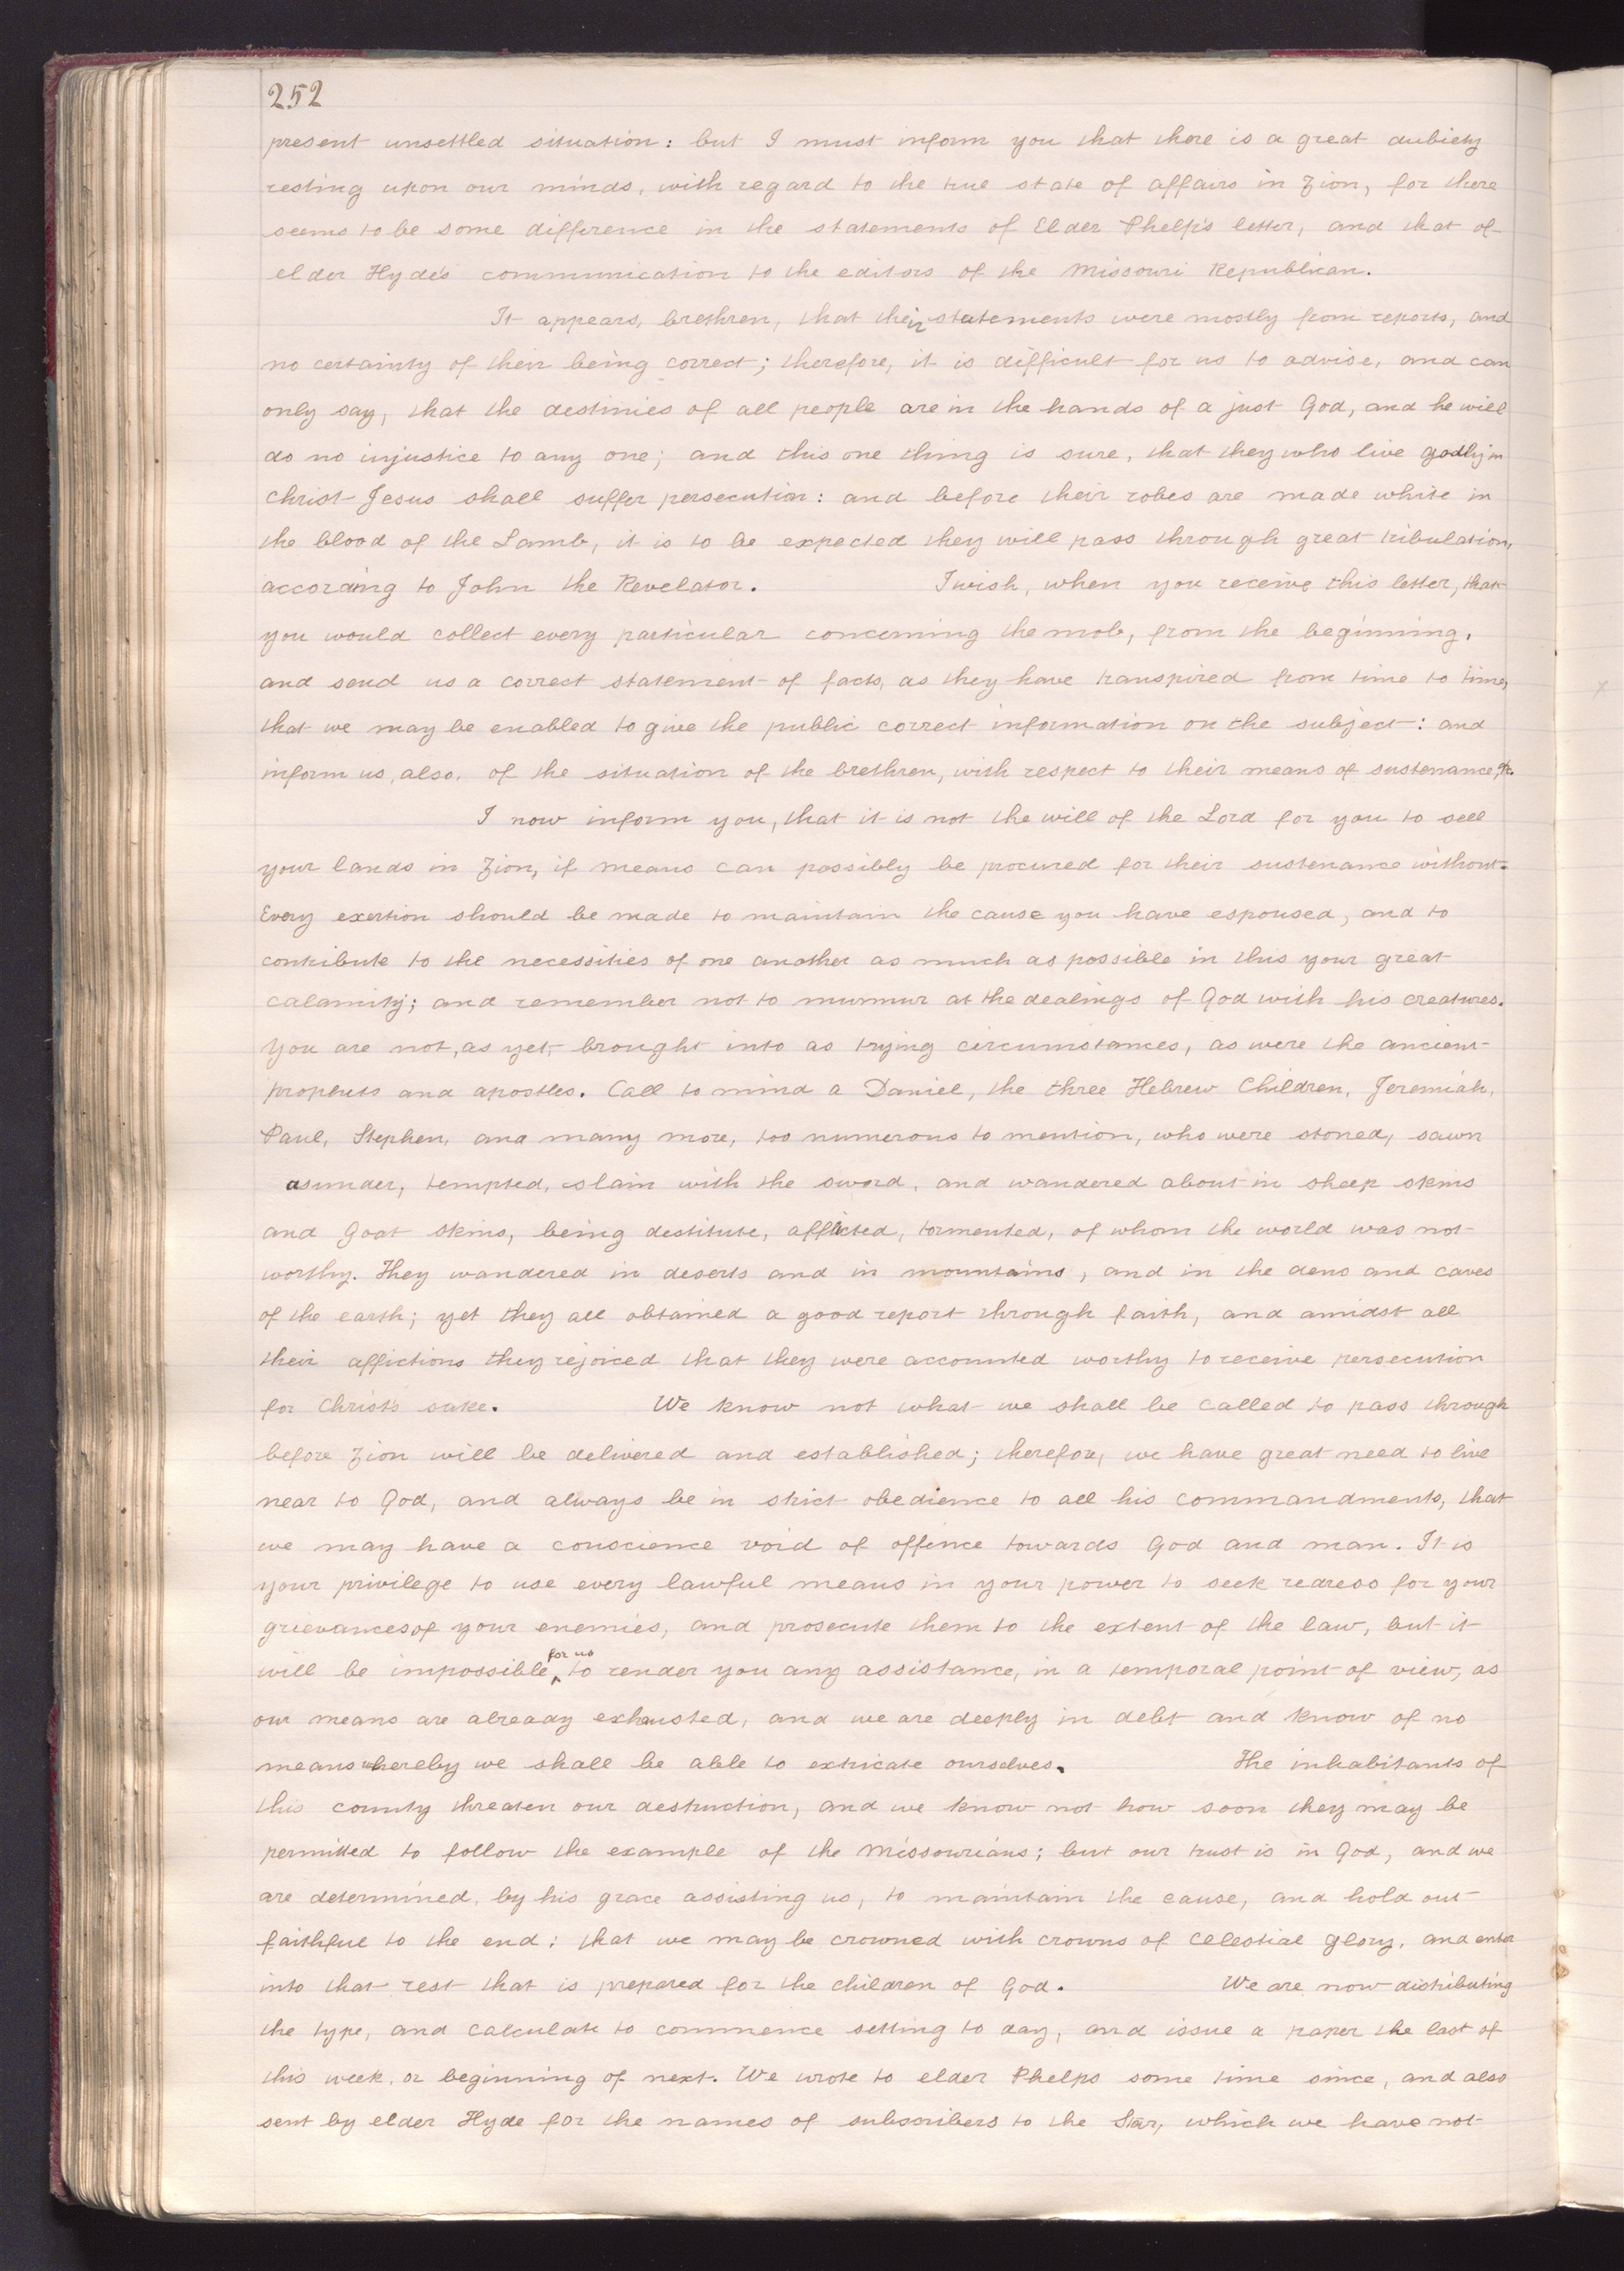 252
present unsettled situation: but I must inform you that there is a great dubiety
resting upon our minds, with regard to the true state of affairs in Zion, for there
seems to be some difference in the statements of Elder Phelp's letter, and that of
elder Hyde's communication to the editors of the Missouri Republican.
It appears, brethren, that their statements were mostly from reports, and
no certainty of their being correct; therefore, it is difficult for us to advise, and can
only say, that the destinies of all people are in the hands of a just God, and he will
do no injustice to any one; and this one thing is sure, that they who live godly in
Christ Jesus shall suffer persecution: and before their robes are made white in
the blood of the Lamb, it is to be expected they will pass through great tribulation,
according to John the Revelator. I wish, when you receive this letter, that
you would collect every particular concerning the mob, from the beginning,
and send us a correct statement of facts, as they have transpired from time to time,
that we may be enabled to give the public correct information on the subject: and
inform us, also, of the situation of the brethren, with respect to their means of sustenance, &c.
I now inform you, that it is not the will of the Lord for you to sell
your lands in Zion, if means can possibly be procured for their sustenance without.
Every exertion should be made to maintain the cause you have espoused, and to
contribute to the necessities of one another as much as possible in this your great
calamity; and remember not to murmur at the dealings of God with his creatures.
You are not, as yet, brought into as trying circumstances, as were the ancient
prophets and apostles. Call to mind a Daniel, the three Hebrew Children, Jeremiah,
Paul, Stephen, and many more, too numerous to mention, who were stoned, sawn
asunder, tempted, slain with the sword, and wandered about in sheep skins
and goat skins, being destitute, afflicted, tormented, of whom the world was not
worthy. They wandered in deserts and in mountains, and in the dens and caves
of the earth; yet they all obtained a good report through faith, and amidst all
their affictions they rejoiced that they were accounted worthy to receive persecution
for Christ's sake. We know not what we shall be called to pass through
before Zion will be delivered and established; therefore, we have great need to live
near to God, and always be in strict obedience to all his commandments, that
we may have a conscience void of offence towards God and man. It is
your privilege to use every lawful means in your power to seek redress for your
grievances of your enemies, and prosecute them to the extent of the law, but it
will be impossible for us to render you any assistance, in a temporal point of view, as
our means are already exhausted, and we are deeply in debt and know of no
means whereby we shall be able to extricate ourselves. The inhabitants of
this county threaten our destruction, and we know not how soon they may be
permitted to follow the example of the Missourians; but our trust is in God, and we
are determined, by his grace assisting us, to maintain the cause, and hold out
faithful to the end: that we may be crowned with crowns of celestial glory, and enter
into that rest that is prepared for the children of God. We are now distributing
the type, and calculate to commence setting to day, and issue a paper the last of
this week, or beginning of next. We wrote to elder Phelps some time since, and also
sent by elder Hyde for the names of subscribers to the Star, which we have not